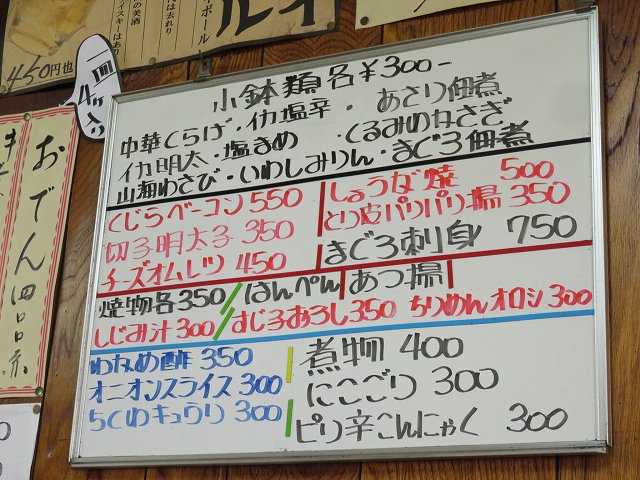 小鉢類各¥300-
中華くらげ・イカ塩辛・あさり佃煮
イカ明太・塩まめ・くるみの女さぎ
山海わさび・いわしみりん・まぐろ佃煮
くじらベーコン 550
切子明太子 350
チーズオムレツ 450
しょうが焼 500
とり皮パリパリ揚 350
まぐろ刺身 750
焼物各350/はんぺん|あつ揚|
しじみ汁300/すじ子おろし350 ちりめんオロシ300
わかめ酢 350
オニオンスライス 300
ちくわキュウリ 300
煮物 400
にこごり 300
ピリ辛こんにゃく 300
おでん
450円也